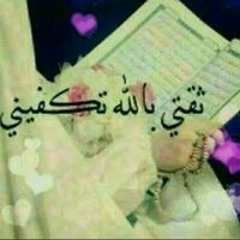 ثقتي بالله تكفيني